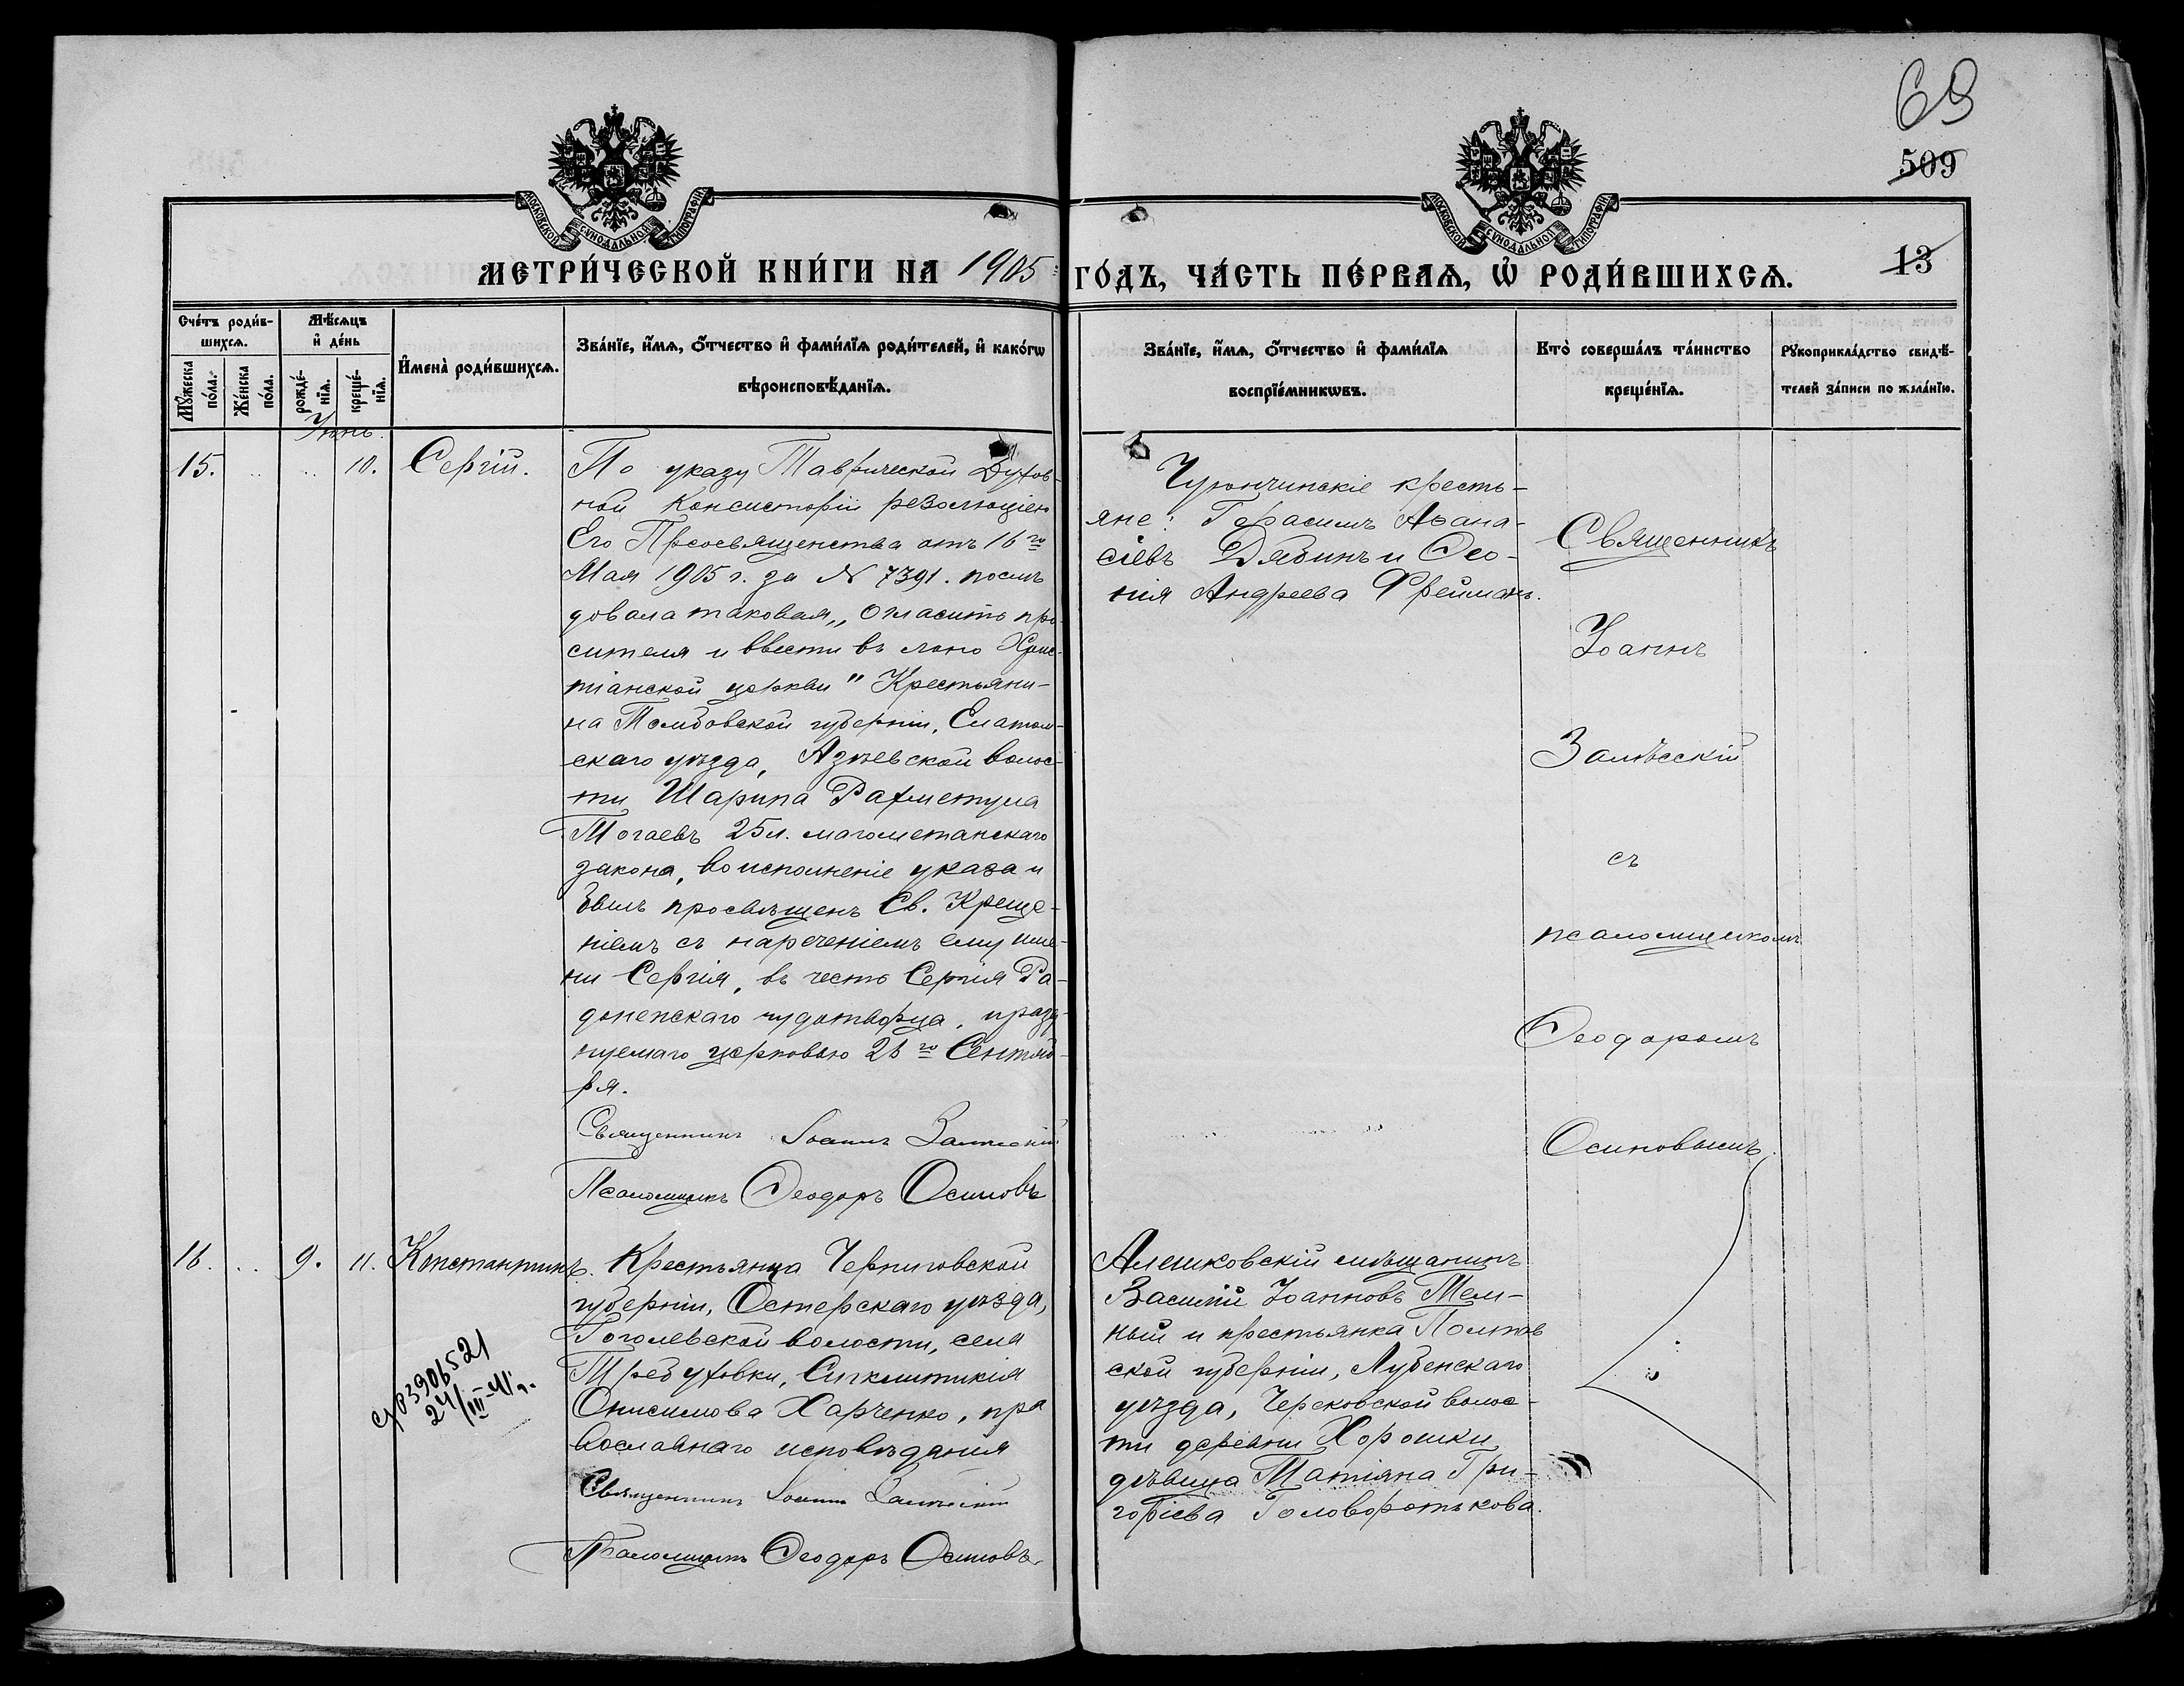 69
509
13
МОСКОВСКОЙ СѴНОДАЛЬНОЙ ТИПОГРАФІИ
МОСКОВСКОЙ СѴНОДАЛЬНОЙ ТИПОГРАФІИ
МЕТРИ́ЧЕСКОЙ КНИ́ГИ НА 1905 ГО́ДЪ, ЧА́СТЬ ПЕ́РВАѦ, Ѽ РОДИ́ВШИХСѦ.
Сче́тъ роди́в-
шихсѧ.
Мꙋ́жеска
по́ла.
Же́нска
по́ла.
Мѣ́сѧцъ
и҆ де́нь
рожде́-
нїѧ.
креще́-
нїѧ.
И҆мена̀ роди́вшихсѧ.
Зва́нїе, и҆́мѧ, ѻ҆́тчество и҆ фами́лїѧ роди́телей, и҆ како́гѡ
вѣроисповѣ́данїѧ.
Зва́нїе, и҆́мѧ, ѻ҆́тчество и҆ фами́лїѧ
воспрїе́мникѡвъ.
Кто̀ соверша́лъ та́инство
креще́нїѧ.
Рꙋкоприкла́дство свидѣ́-
телей за́писи по жела́нїю.
Іюнь.
15. .. .. 10. Сергій.
По указу Таврической Духов-
ной Консисторіи резолюціею
Его Преосвященства отъ 16го
Мая 1905 г. за № 7391. послѣ
довала таковая „Огласить про-
сителя и ввести въ лоно Хрис-
тіанской церкви" Крестьяни-
на Тамбовской губерніи, Елатом-
скаго уѣзда, Азѣевской волос-
ти Шарипа Рахметула
Тогаевъ 25 л. магометанскаго
закона, во исполненіе указа и
былъ просвѣщенъ Св. Креще-
ніемъ съ нареченіемъ ему име-
ни Сергія, въ честь Сергія Ра-
донежскаго чудотворца, празд-
нуемаго церковью 25го Сентяб-
ря.
Священникъ Іоаннъ Залѣсскій
Псаломщикъ Ѳеодоръ Осиповъ
Чулончинскіе кресть-
яне: Герасимъ Аѳана-
сіевъ Дябинъ и Ѳео-
нія Андреева Фрейманъ.
Священникъ
Іоаннъ
Залѣсскій
съ
псаломщикомъ
Ѳеодоромъ
Осиповымъ.
16. .. 9. 11. Константинъ.
Крестьянка Черниговской
губерніи, Остерскаго уѣзда,
Гоголевской волости, села
Требуховки, Синклитикія
Онисимова Харченко, пра
вославнаго исповѣданія
Священникъ Іоаннъ Залѣсскій
Псаломщикъ Ѳеодоръ Осиповъ
Алешковскій мѣщанинъ
Василій Іоанновъ Тем-
ный и крестьянка Полтав
ской губерніи, Лубенскаго
уѣзда, волос-
ти деревни Хорошки
дѣвица Татіяна Гри-
горіева Головоротькова.
03906521
24/III-41 г.